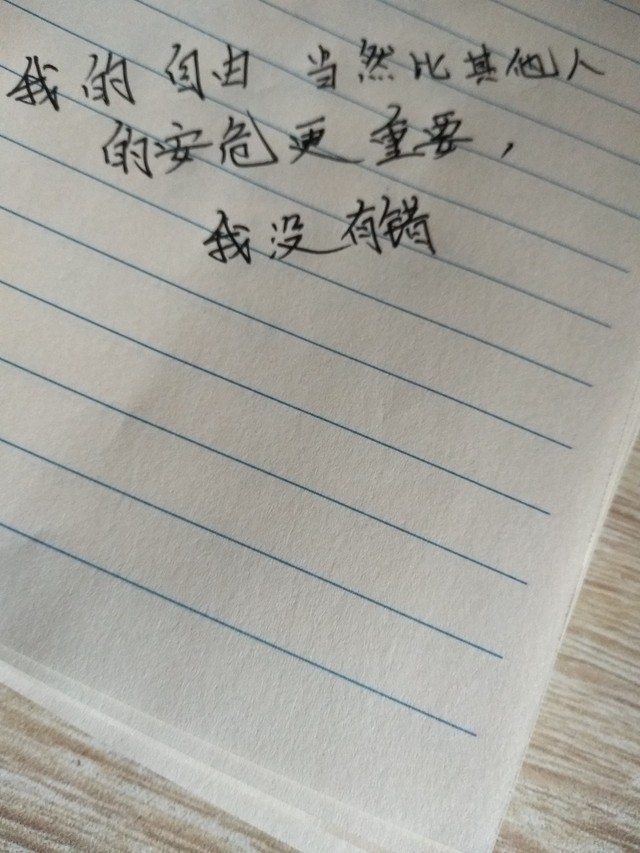 我的自由当然比其他人
的安危更重要，
我没有错